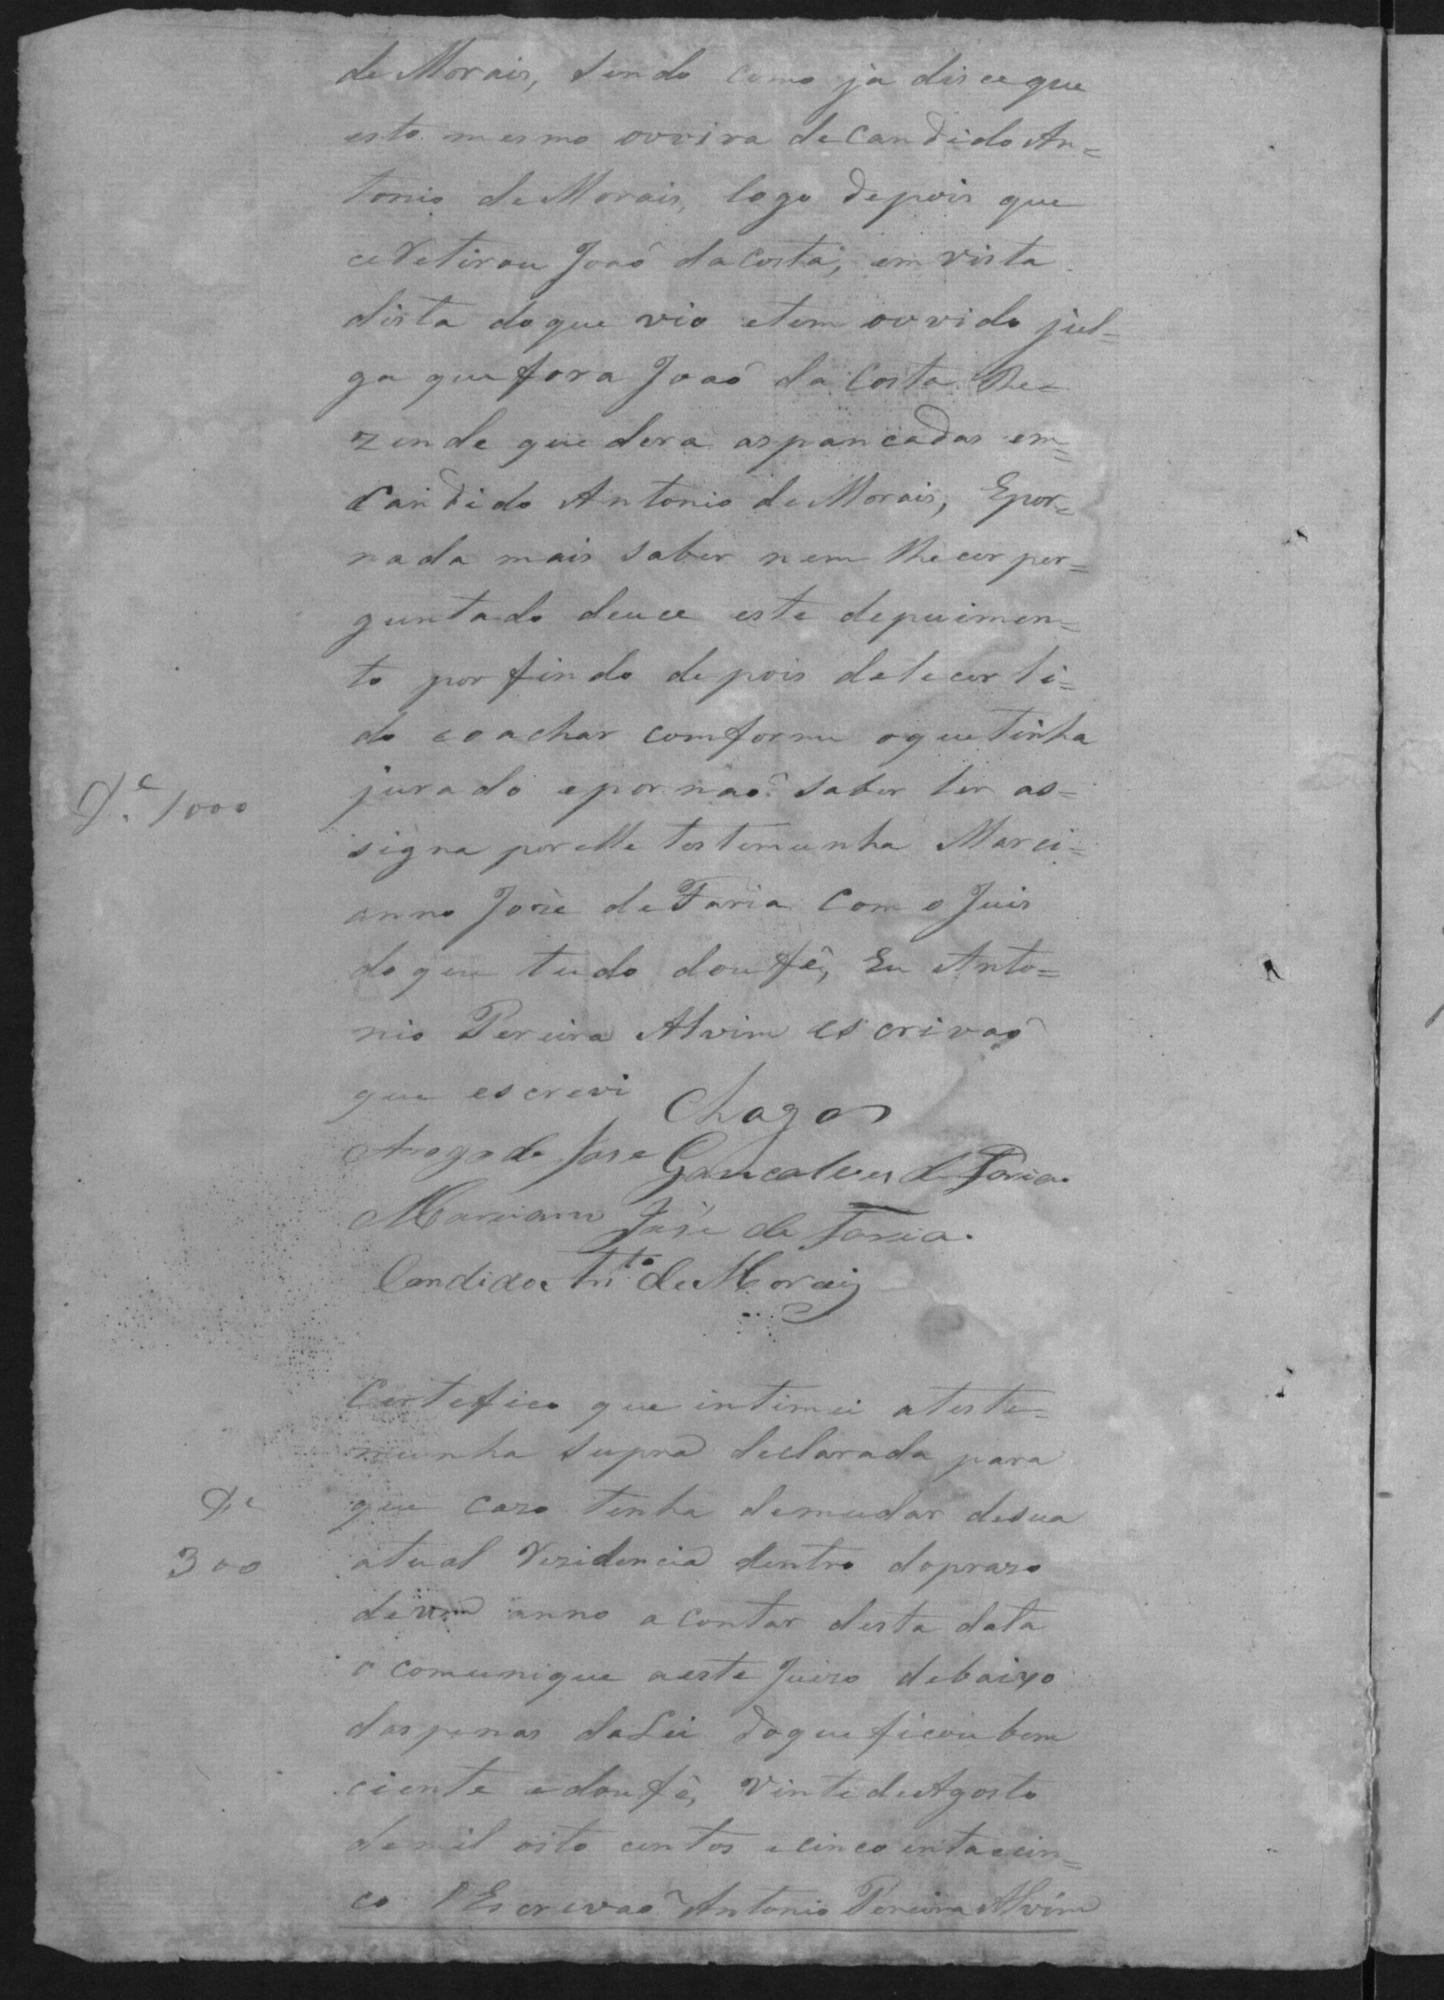 de Morais, sendo como ja disce que
esto mesmo ouvira de Candido An=
tonio de Morais, logo depois que
ce Retirou Joaõ da Costa, em vista
dista do que vio etem ouvido jul=
ga que fora Joaõ da Costa Re=
zende que dera as pancadas em=
Candido Antonio de Morais, Epor=
nada mais saber nem lhe cer per=
guntado deuce este depuimen=
to por findo depois de le cer li=
do eo achar comforme oque tinha
jurado epor naõ saber ler as=
D.e 1000
signa por elle testemunha Marci=
anno Joze de Faria Com o Juis
do que tudo dou fê, Eu Anto=
nio Pereira Alvim escrivaõ
que escrevi
Chagas
Arogo de Jose Goncalves de Faria
Marciano José de Faria.
Candido An.to de Morais
Certefico que intimei ateste=
munha supra declarada para
que cazo tenha demudar desua
D.e
300
atual Rezidencia dentro do prazo
de um anno a contar desta data
o comunique aeste Juizo debaixo
das penas da Lei do que ficou bem
ciente e dou fê, Vinte de Agosto
de mil oito centos e cinco enta e cin=
co O Escrivaõ Antonio Pereira Alvim